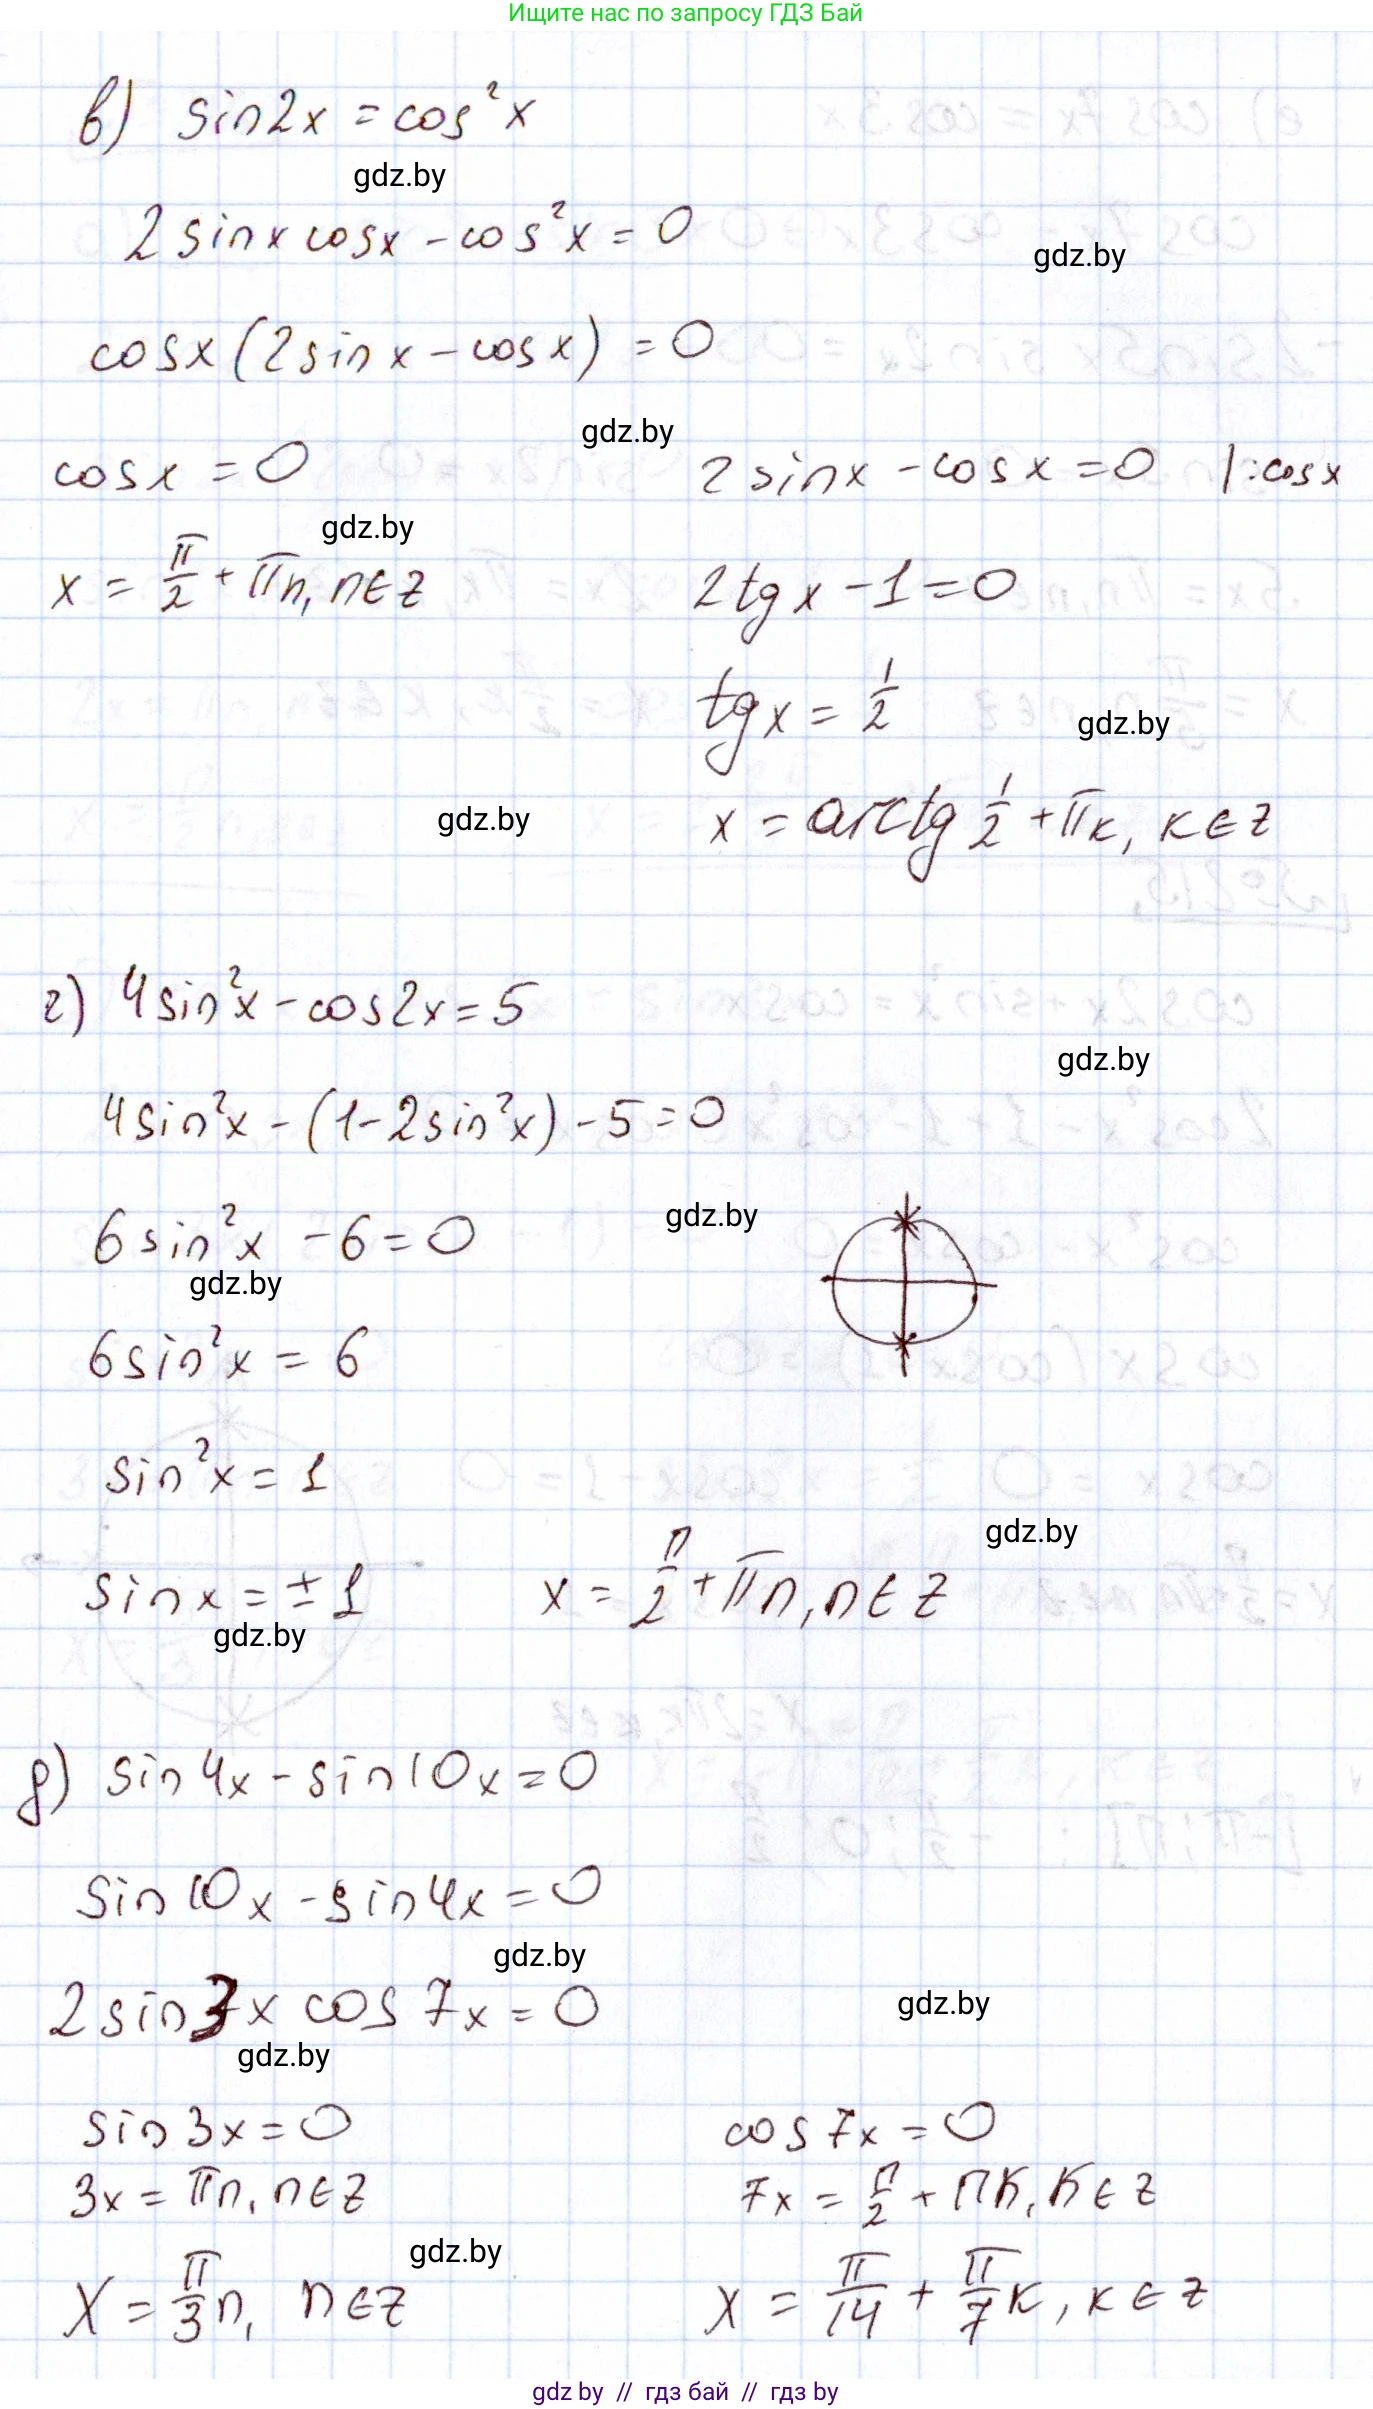 Ищите нас по запросу ГДЗ Бай
в) sin2x = cos²x
gdz.by
2 sinx cosx - cos²x = 0
gdz.by
cosx (2sinx - cosx) = 0
gdz.by
cosx = 0
2 sinx - cosx = 0 |:cosx
gdz.by
x = π/2 + πn, n∈Z
2tgx - 1 = 0
tgx = 1/2
gdz.by
gdz.by
x = arctg 1/2 + πк, к∈Z
г) 4sin²x - cos2x = 5
gdz.by
4sin²x - (1-2sin²x) - 5 = 0
gdz.by
6sin²x - 6 = 0
gdz.by
6sin²x = 6
sin²x = 1
gdz.by
sinx = ±1
x = π/2 + πn, n∈Z
gdz.by
g) sin4x - sin10x = 0
sin10x - sin4x = 0
gdz.by
2 sin3x cos7x = 0
gdz.by
gdz.by
sin3x = 0
cos7x = 0
3x = πn, n∈Z
7x = π/2 + πк, к∈Z
gdz.by
x = π/3 n, n∈Z
x = π/14 + π/7 к, к∈Z
gdz by // гдз бай // гдз by